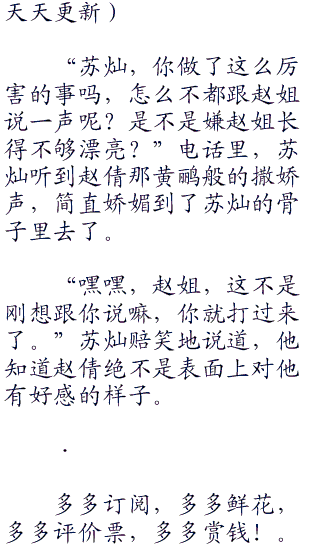 天天更新）
“苏灿，你做了这么厉
害的事吗，怎么不都跟赵姐
说一声呢？是不是嫌赵姐长
得不够漂亮？”电话里，苏
灿听到赵倩那黄鹂般的撒娇
声，简直娇媚到了苏灿的骨
子里去了。
“嘿嘿，赵姐，这不是
刚想跟你说嘛，你就打过来
了。”苏灿赔笑地说道，他
知道赵倩绝不是表面上对他
有好感的样子。
．
多多订阅，多多鲜花，
多多评价票，多多赏钱！。